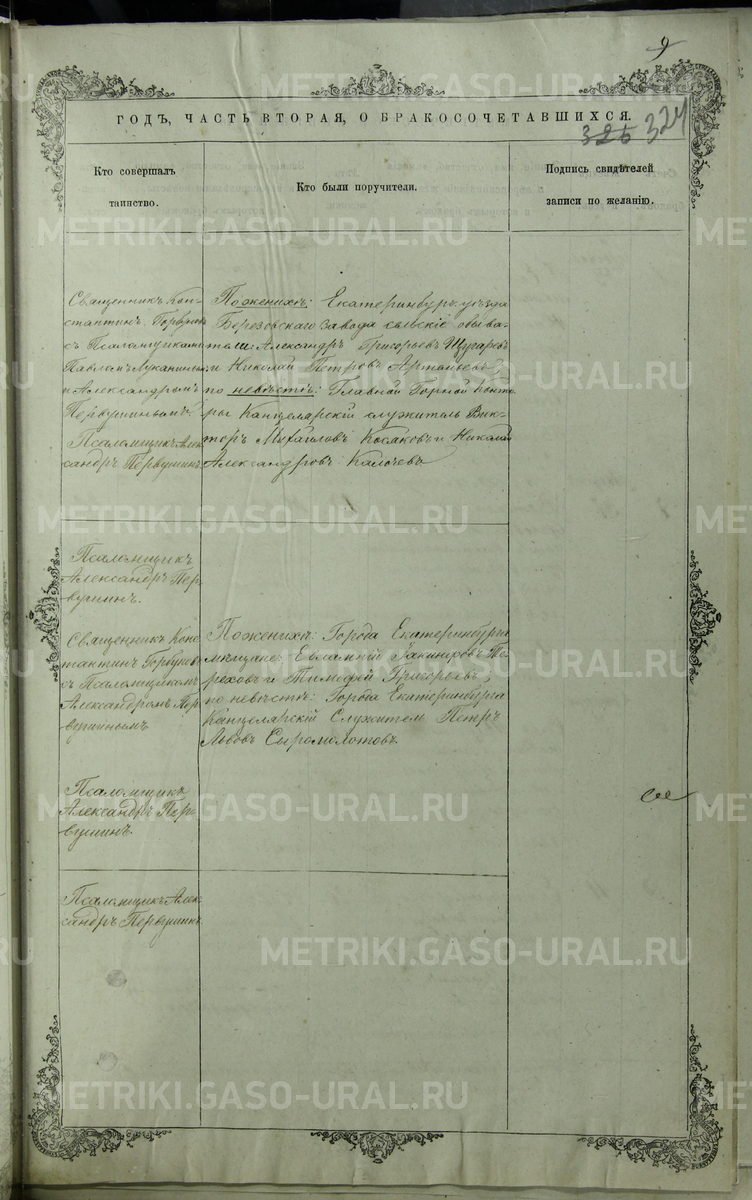 9
ГОДЪ, ЧАСТЬ ВТОРАЯ, О БРАКОСОЧЕТАВШИХСЯ.
325 324
Кто совершалъ
таинство.
Кто были поручители.
Подпись свидѣтелей
записи по желанію.
Священникъ Кон-
стантинъ
съ Псаломщиками
Павломъ Луканинымъ
и Александромъ
Первушинымъ
Псаломщикъ Алек-
сандръ Первушинъ
По женихѣ: Екатеринбур. уѣзда
Березовскаго завода сельскіе обыва-
тели: Александръ Григорьевъ Щугоревъ
и Николай Петровъ Артемьевъ;
по невѣстѣ: Главной Горной Конто-
ры Канцелярскій служитель Вик-
торъ Михайловъ Косаковъ и Николай
Александровъ Калочевъ
Псаломщикъ
Александръ Пер-
вушинъ.
Священникъ Конс
тантинъ
съ Псаломщикомъ
Александромъ Пер
вушинымъ
По женихѣ: Города Екатеринбурга
мѣщане: Евлампій Іакинфовъ Те-
реховъ и Тимофей Григорьевъ;
по невѣстѣ: Города Екатеринбурга
Канцелярскій Служитель Петръ
Львовъ Сыромолотовъ.
Псаломщикъ
Александръ Пер-
вушинъ.
Псаломщикъ Алек-
сандръ Первушинъ.
METRIKI.GASO-URAL.RU